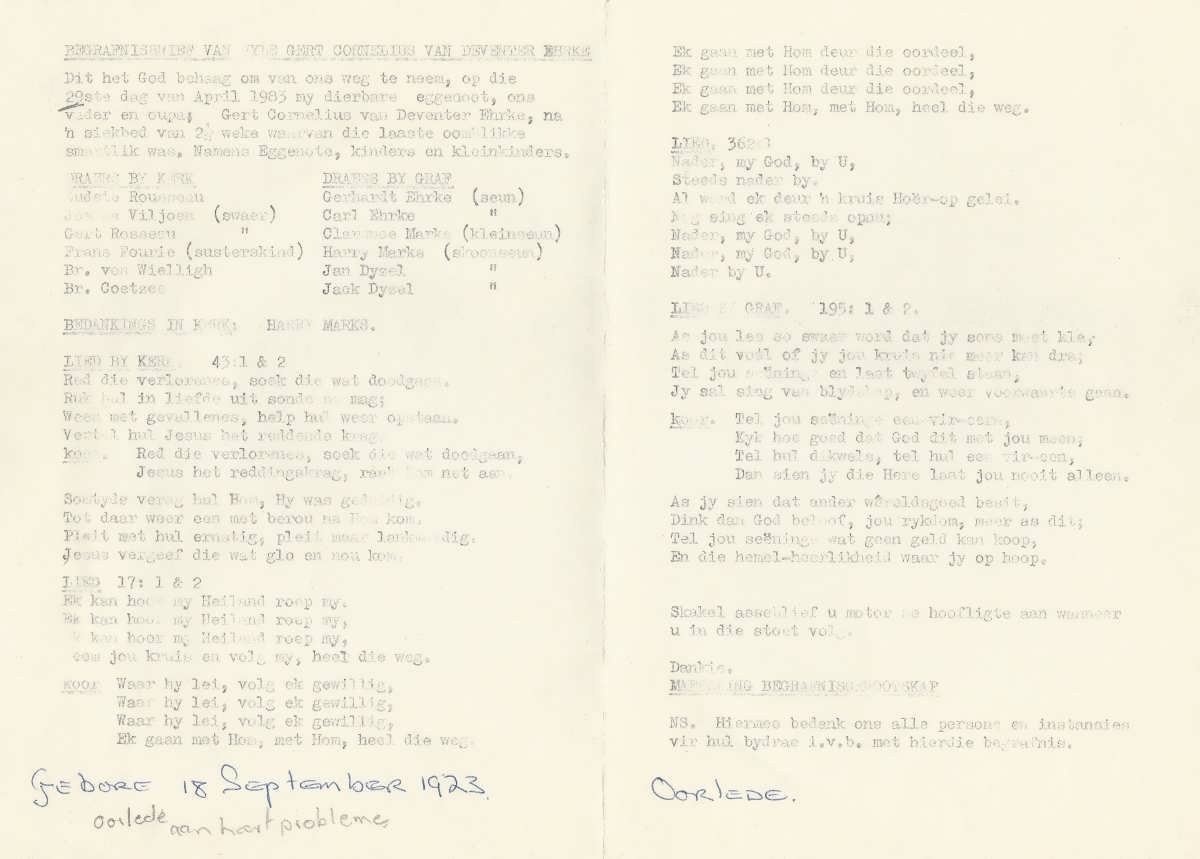 BEGRAFNISBRIEF VAN GERT CORNELIUS VAN DEVENTER EHRKE
Dit het God behaag om van ons weg te neem, op die
29ste dag van April 1983 my dierbare eggenoot, ons
vader en oupa; Gert Cornelius van Deventer Ehrke, na
'n siekbed van 2½ weke waarvan die laaste oomblikke
smartlik was. Namens Eggenote, kinders en kleinkinders.
DRAERS BY KERK
Oudste Rousseau
Viljoen (swaer)
Gert Rosseeu "
Frans Fourie (susterskind)
Br. von Wielligh
Br. Coetzee
DRAERS BY GRAF
Gerhardt Ehrke (seun)
Carl Ehrke "
Clarence Marks (kleinseun)
Harry Marks (skoonseun)
Jan Dyzel "
Jack Dyzel "
BEDANKINGS IN KERK: HARRY MARKS.
LIED BY KERK. 43:1 & 2
Red die verlorenes, soek die wat doodgaan.
Ruk hul in liefde uit sonde se mag;
Ween met gevallenes, help hul weer opstaan.
Vertel hul Jesus het reddende krag.
koor. Red die verlorenes, soek die wat doodgaan;
Jesus het reddingskrag, rank hom net aan.
Somtyds verag hul Hom, Hy was geduldig.
Tot daar weer een met berou na Hom kom.
Pleit met hul ernstig, pleit maar lankmoedig.
Jesus vergeef die wat glo en nou kom.
LIED 17: 1 & 2
Ek kan hoor my Heiland roep my.
Ek kan hoor my Heiland roep my,
k kan hoor my Heiland roep my,
eem jou kruis en volg my, heel die weg.
KOOR Waar hy lei, volg ek gewillig,
Waar hy lei, volg ek gewillig,
Waar hy lei, volg ek gewillig,
Ek gaan met Hom, met Hom, heel die weg.
Gebore 18 September 1923.
oorlede aan hart probleme
Ek gaan met Hom deur die oordeel,
Ek gaan met Hom deur die oordeel,
Ek gaan met Hom deur die oordeel,
Ek gaan met Hom, met Hom, heel die weg.
LIED. 362:1
Nader, my God, by U,
Steeds nader by.
Al word ek deur 'n kruis Hoër-op gelei.
Nog sing ek steeds opan;
Nader, my God, by U,
Nader, my God, by U,
Nader by U.
LIED BY GRAF. 195: 1 & 2.
As jou las so swaar word dat jy soms moet kla,
As dit voel of jy jou kruis nie meer kan dra;
Tel jou seëninge en laat twyfel staan,
Jy sal sing van blydskap, en weer voorwaarts gaan.
koor. Tel jou seëninge een-vir-een,
Kyk hoe goed dat God dit met jou meen;
Tel hul dikwels, tel hul een vir-een,
Dan sien jy die Here laat jou nooit alleen.
As jy sien dat ander wêreldsgoed besit,
Dink dan God beloof, jou rykdom, meer as dit;
Tel jou seëninge wat geen geld kan koop,
En die hemel-heerlikheid waar jy op hoop.
Skakel asseblief u motor se hoofligte aan wanneer
u in die stoet volg.
Dankie.
BEGRAFNISGENOOTSKAP
NS. Hiermee bedank ons alle persone en instansies
vir hul bydrae i.v.b. met hierdie begrafnis.
Oorlede.